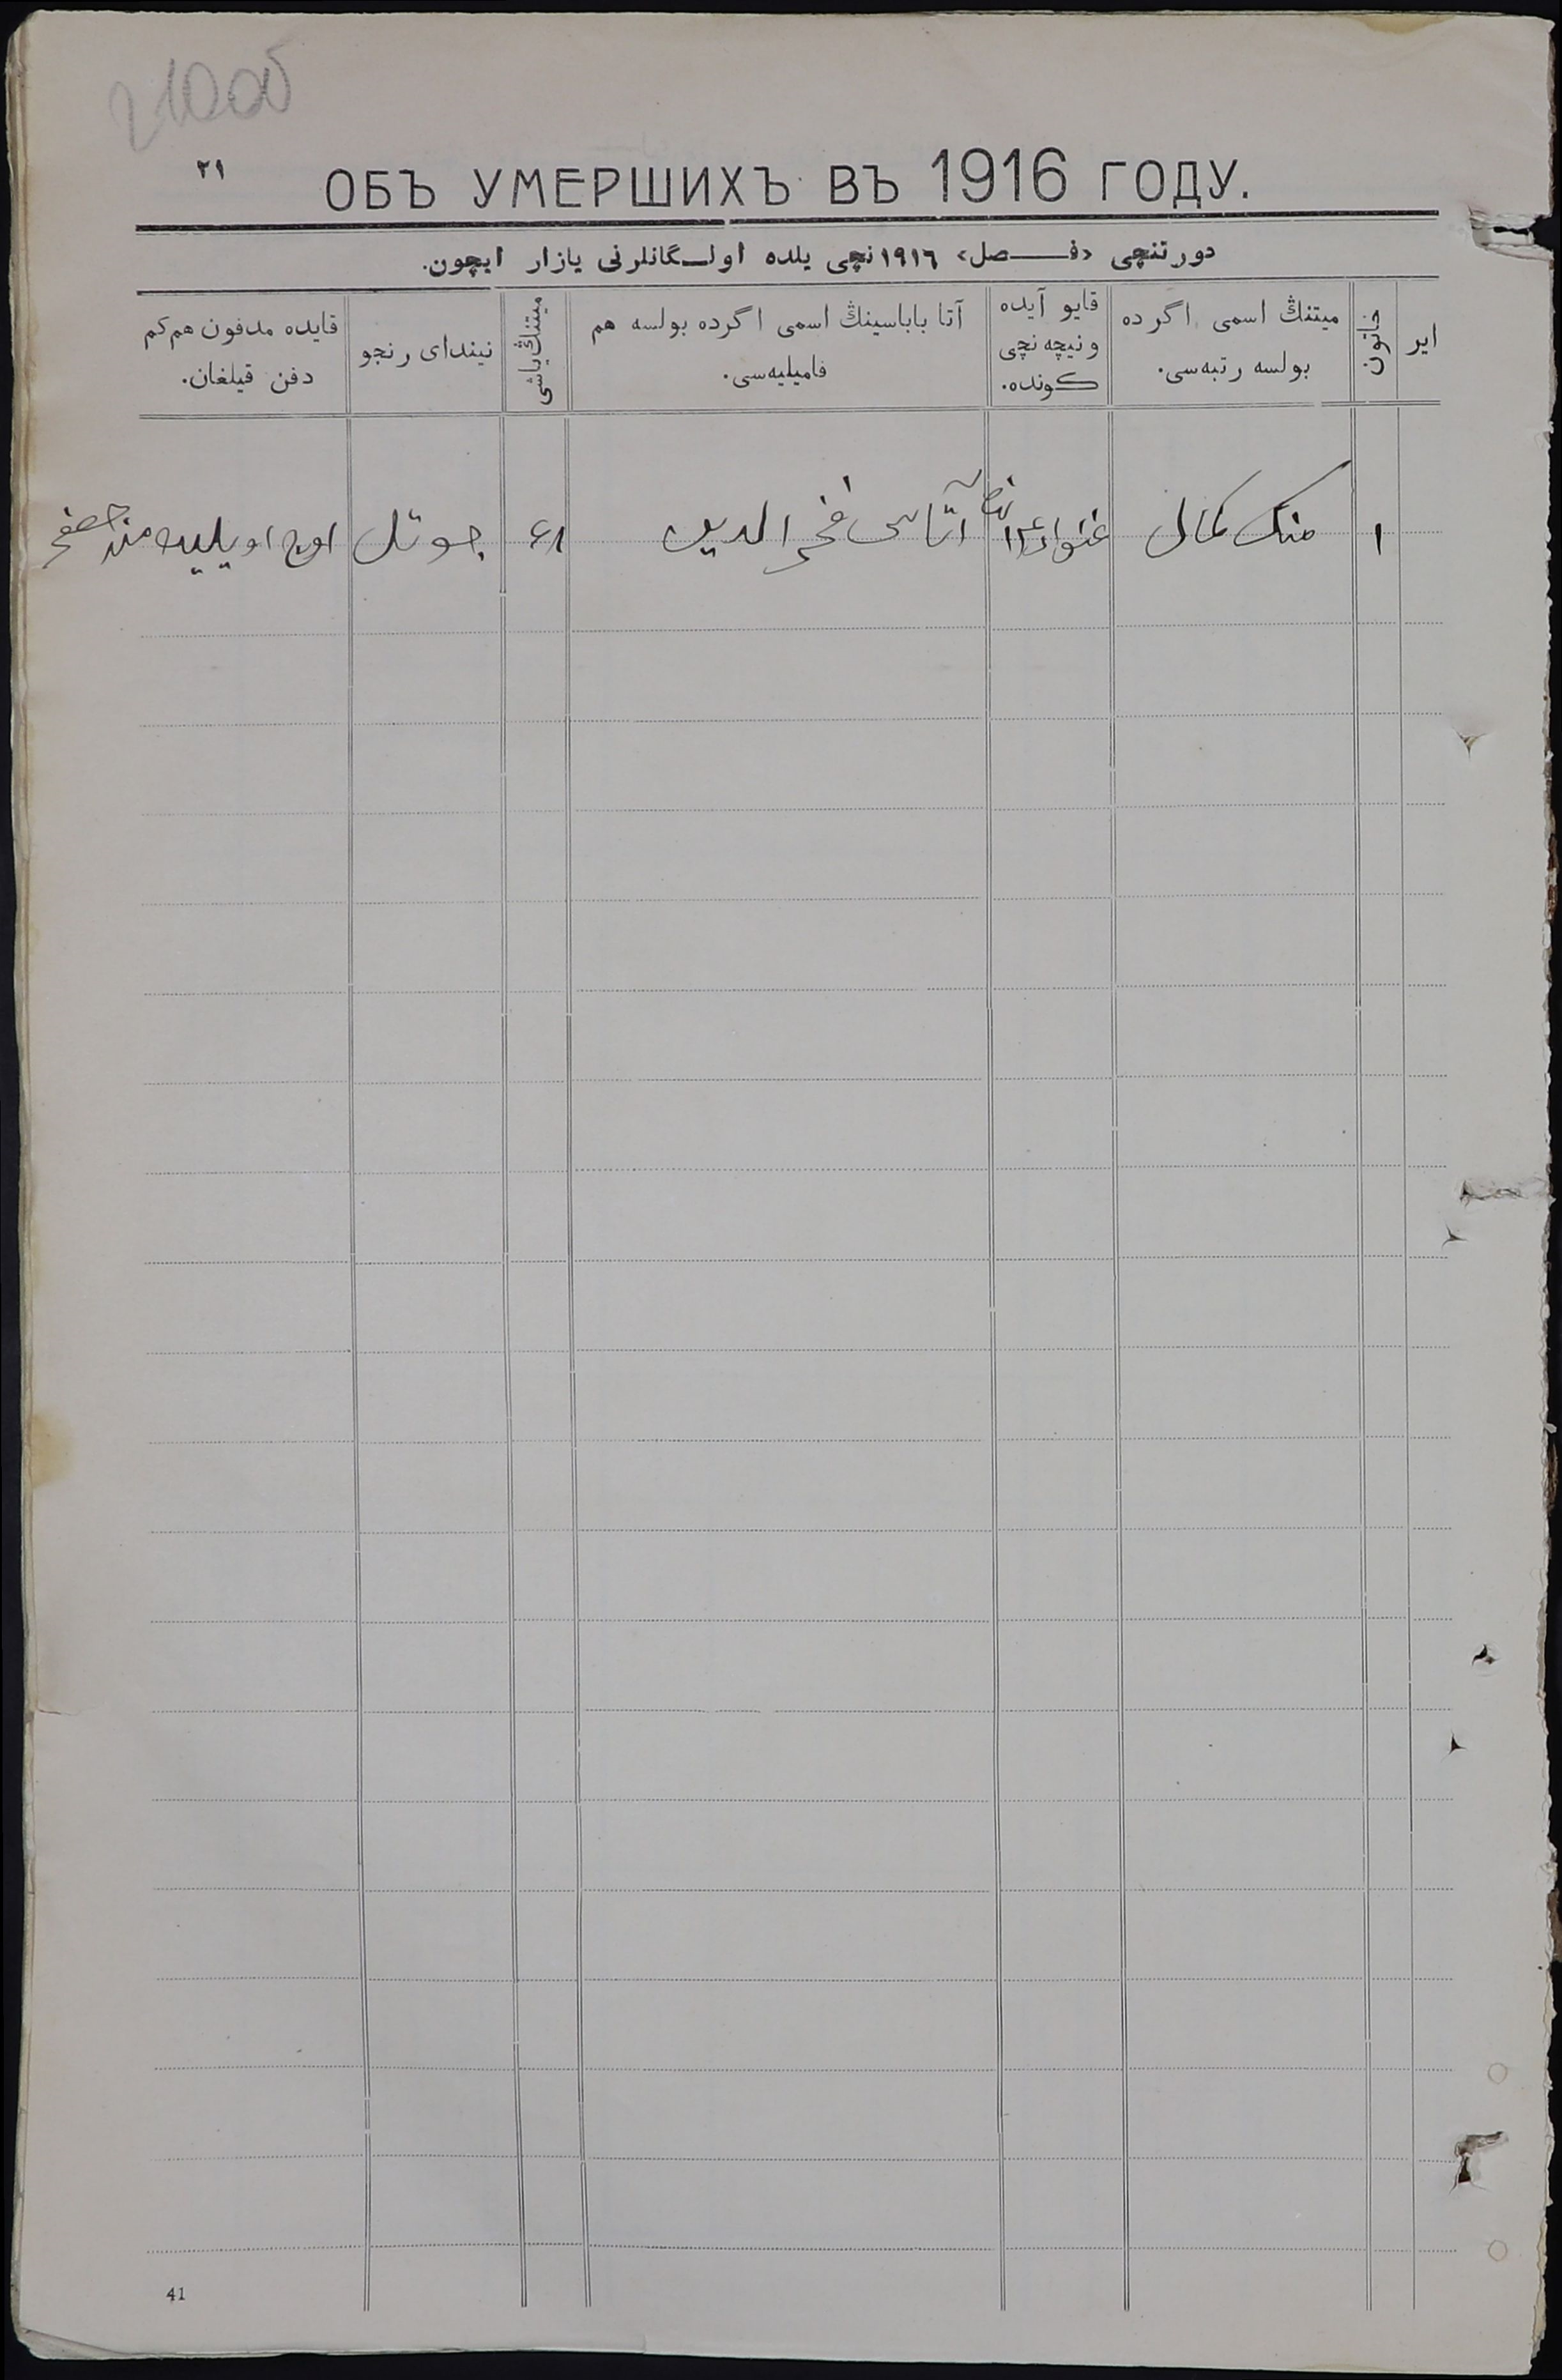 ٢١
ОБЪ УМЕРШИХЪ ВЪ 1916 ГОДУ.
دورتنچی «فـــصل» ١٩١٦نچی یلده اولـگانلرنی یازار ایچون.
ایر
خاتون
میتنڭ اسمی اگرده
بولسه رتبه‌سی.
قایو آیده
ونیچه‌نچی
کونده.
آتا باباسینڭ اسمی اگرده بولسه هم
فامیلیه‌سی.
میتنڭ یاشی
نیندای رنجو
قایده مدفون هم‌کم
دفن قیلغان.
١ کمال آتاسی فخرالدین جوتل
41